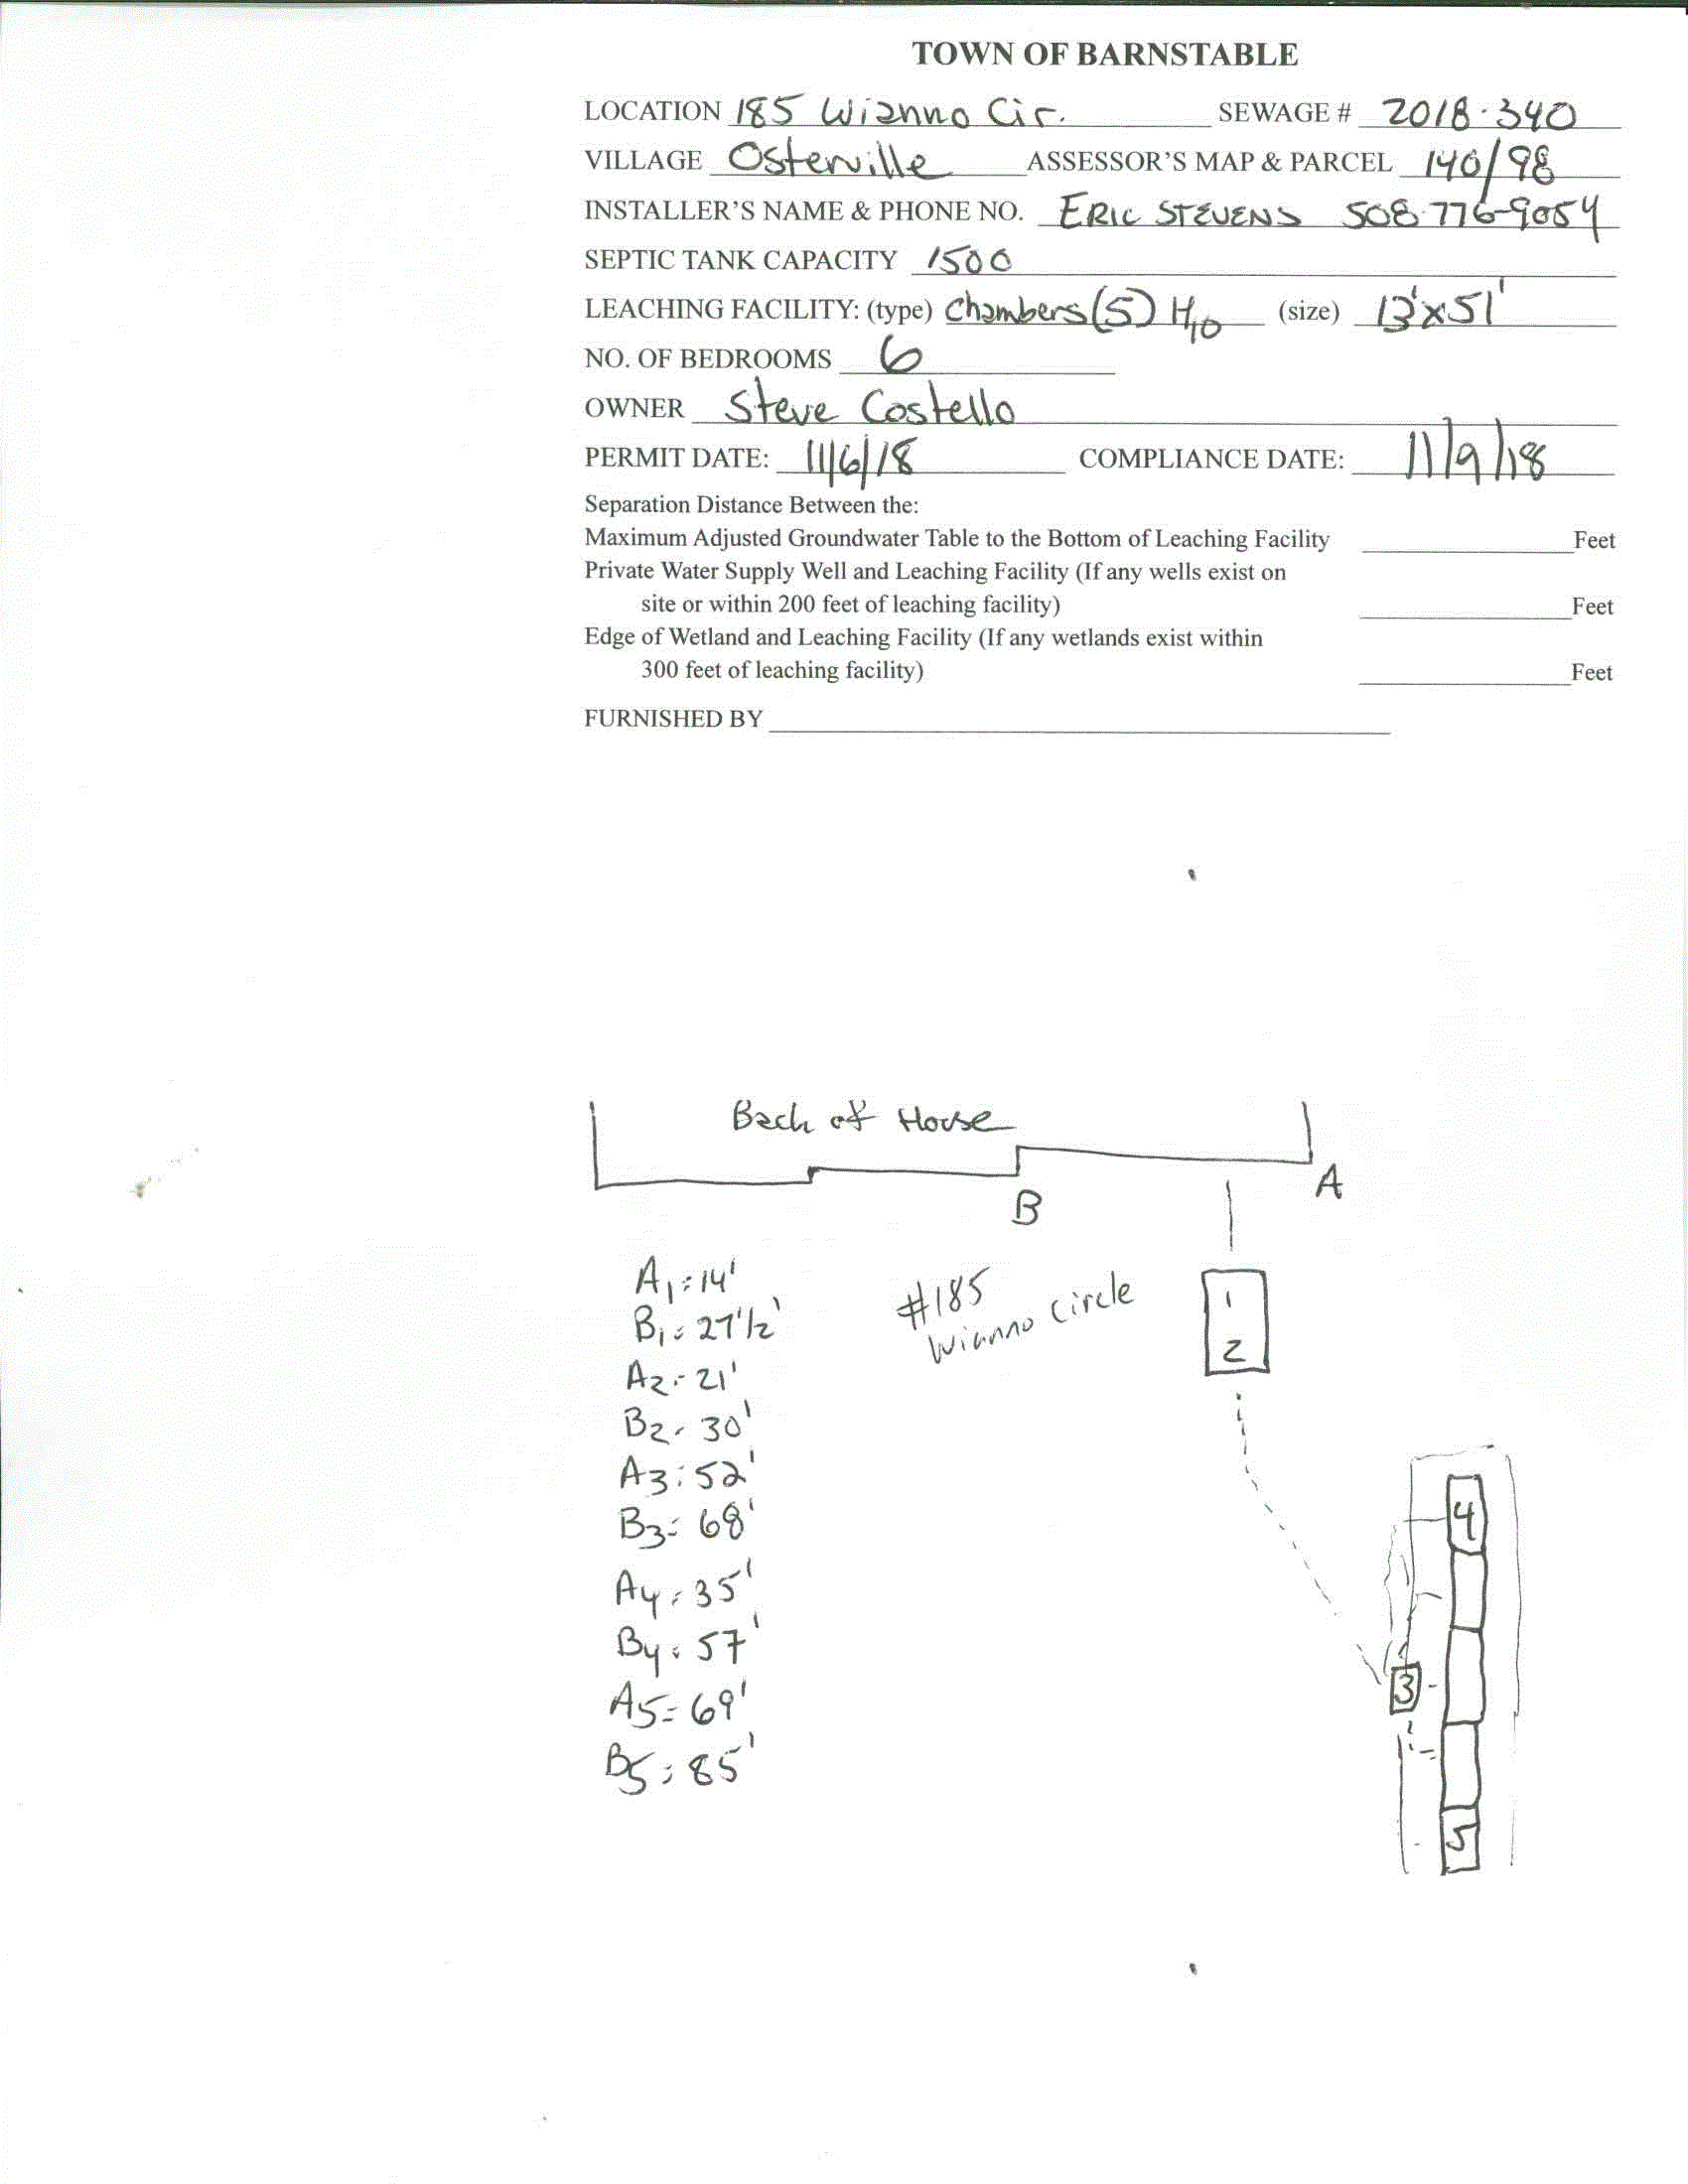 TOWN OF BARNSTABLE
LOCATION 185 Wianno Cir. SEWAGE # 2018-340
VILLAGE Osterville ASSESSOR'S MAP & PARCEL 140/98
INSTALLER'S NAME & PHONE NO. ERIC STEVENS 508-776-9054
SEPTIC TANK CAPACITY 1500
LEACHING FACILITY: (type) Chambers (5) H10 (size) 13'x51'
NO. OF BEDROOMS 6
OWNER Steve Costello
PERMIT DATE: 11/6/18 COMPLIANCE DATE: 11/9/18
Separation Distance Between the:
Maximum Adjusted Groundwater Table to the Bottom of Leaching Facility Feet
Private Water Supply Well and Leaching Facility (If any wells exist on
site or within 200 feet of leaching facility) Feet
Edge of Wetland and Leaching Facility (If any wetlands exist within
300 feet of leaching facility) Feet
FURNISHED BY
Back of House
A
B
A1 = 14'
B1 = 27 1/2'
A2 - 21'
B2 - 30'
A3 = 52'
B3 = 68'
A4 = 35'
B4 = 57'
A5 = 69'
B5 = 85'
#185
Wianno Circle
1
2
4
3
5